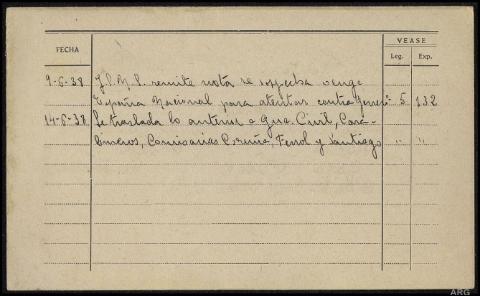 FECHA
VEASE
Leg. Exp.
9-6-38 remite nota se sospecha venga
España Nacional para atentar contra 5 132
14-6-38 Se traslada lo anterior a Gua. Civil, Cara-
bineros, Comisarias Coruña, Ferrol y Santiago " "
ARG